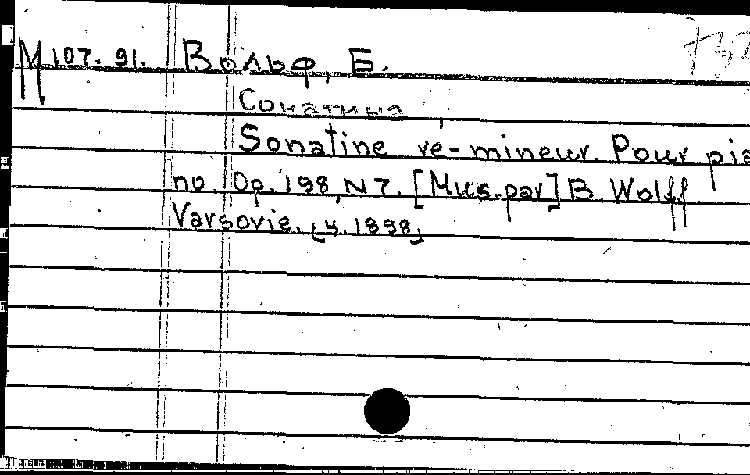 М 107. 91. Вольф, Б.
Сонатина
Sonatine re-mineur. Pour pia
no. Op. 198, N 7. [Mus.par] B. Wolff
Varsovie. [ц. 1898]